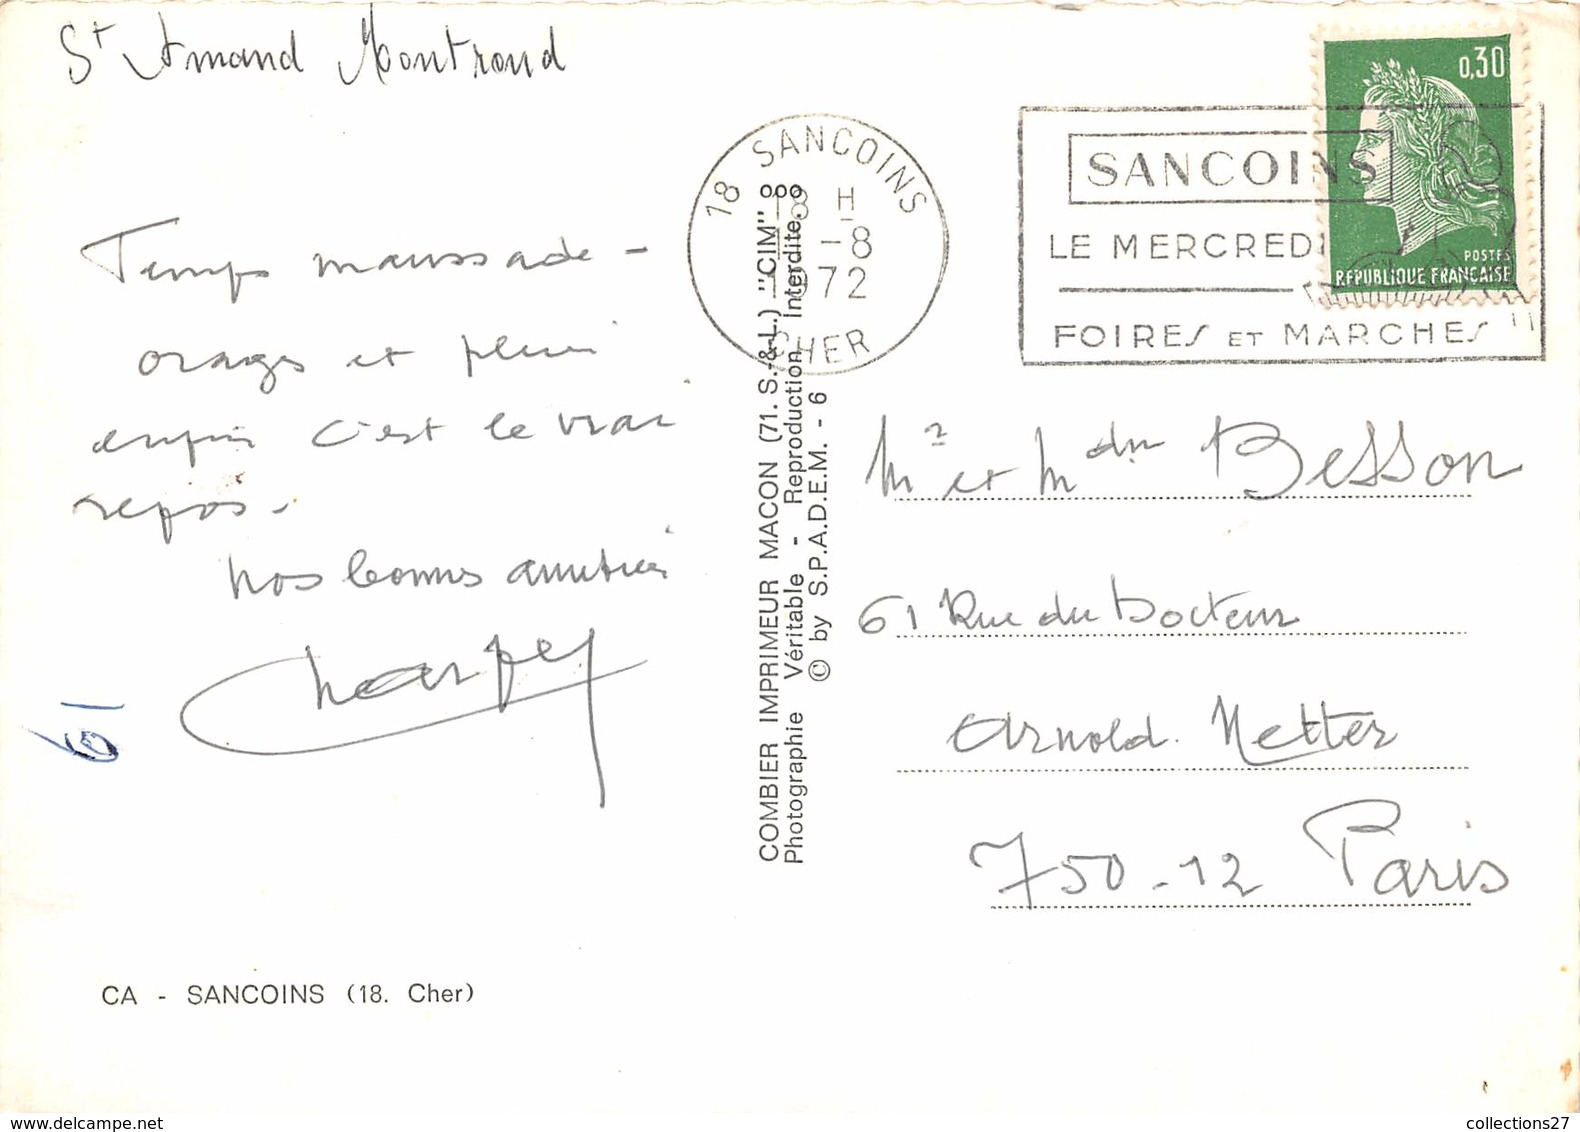 St Amand Montrond
Temps maussade -
orages et pluie
enfin c'est le vrai
repos.
Nos bonnes amitiés
61
CA - SANCOINS (18. Cher)
COMBIER IMPRIMEUR MACON (71. S.-&-L.) "CIM"
Photographie Véritable - Reproduction Interdite.
© by S.P.A.D.E.M. - 6
18 SANCOINS
18 H
-8
1972
CHER
SANCOINS
LE MERCREDI
FOIRES ET MARCHES
0,30
POSTES
REPUBLIQUE FRANÇAISE
Mr et Mdm Besson
61 Rue du Docteur
Arnold. Netter
750-12 Paris
collections27